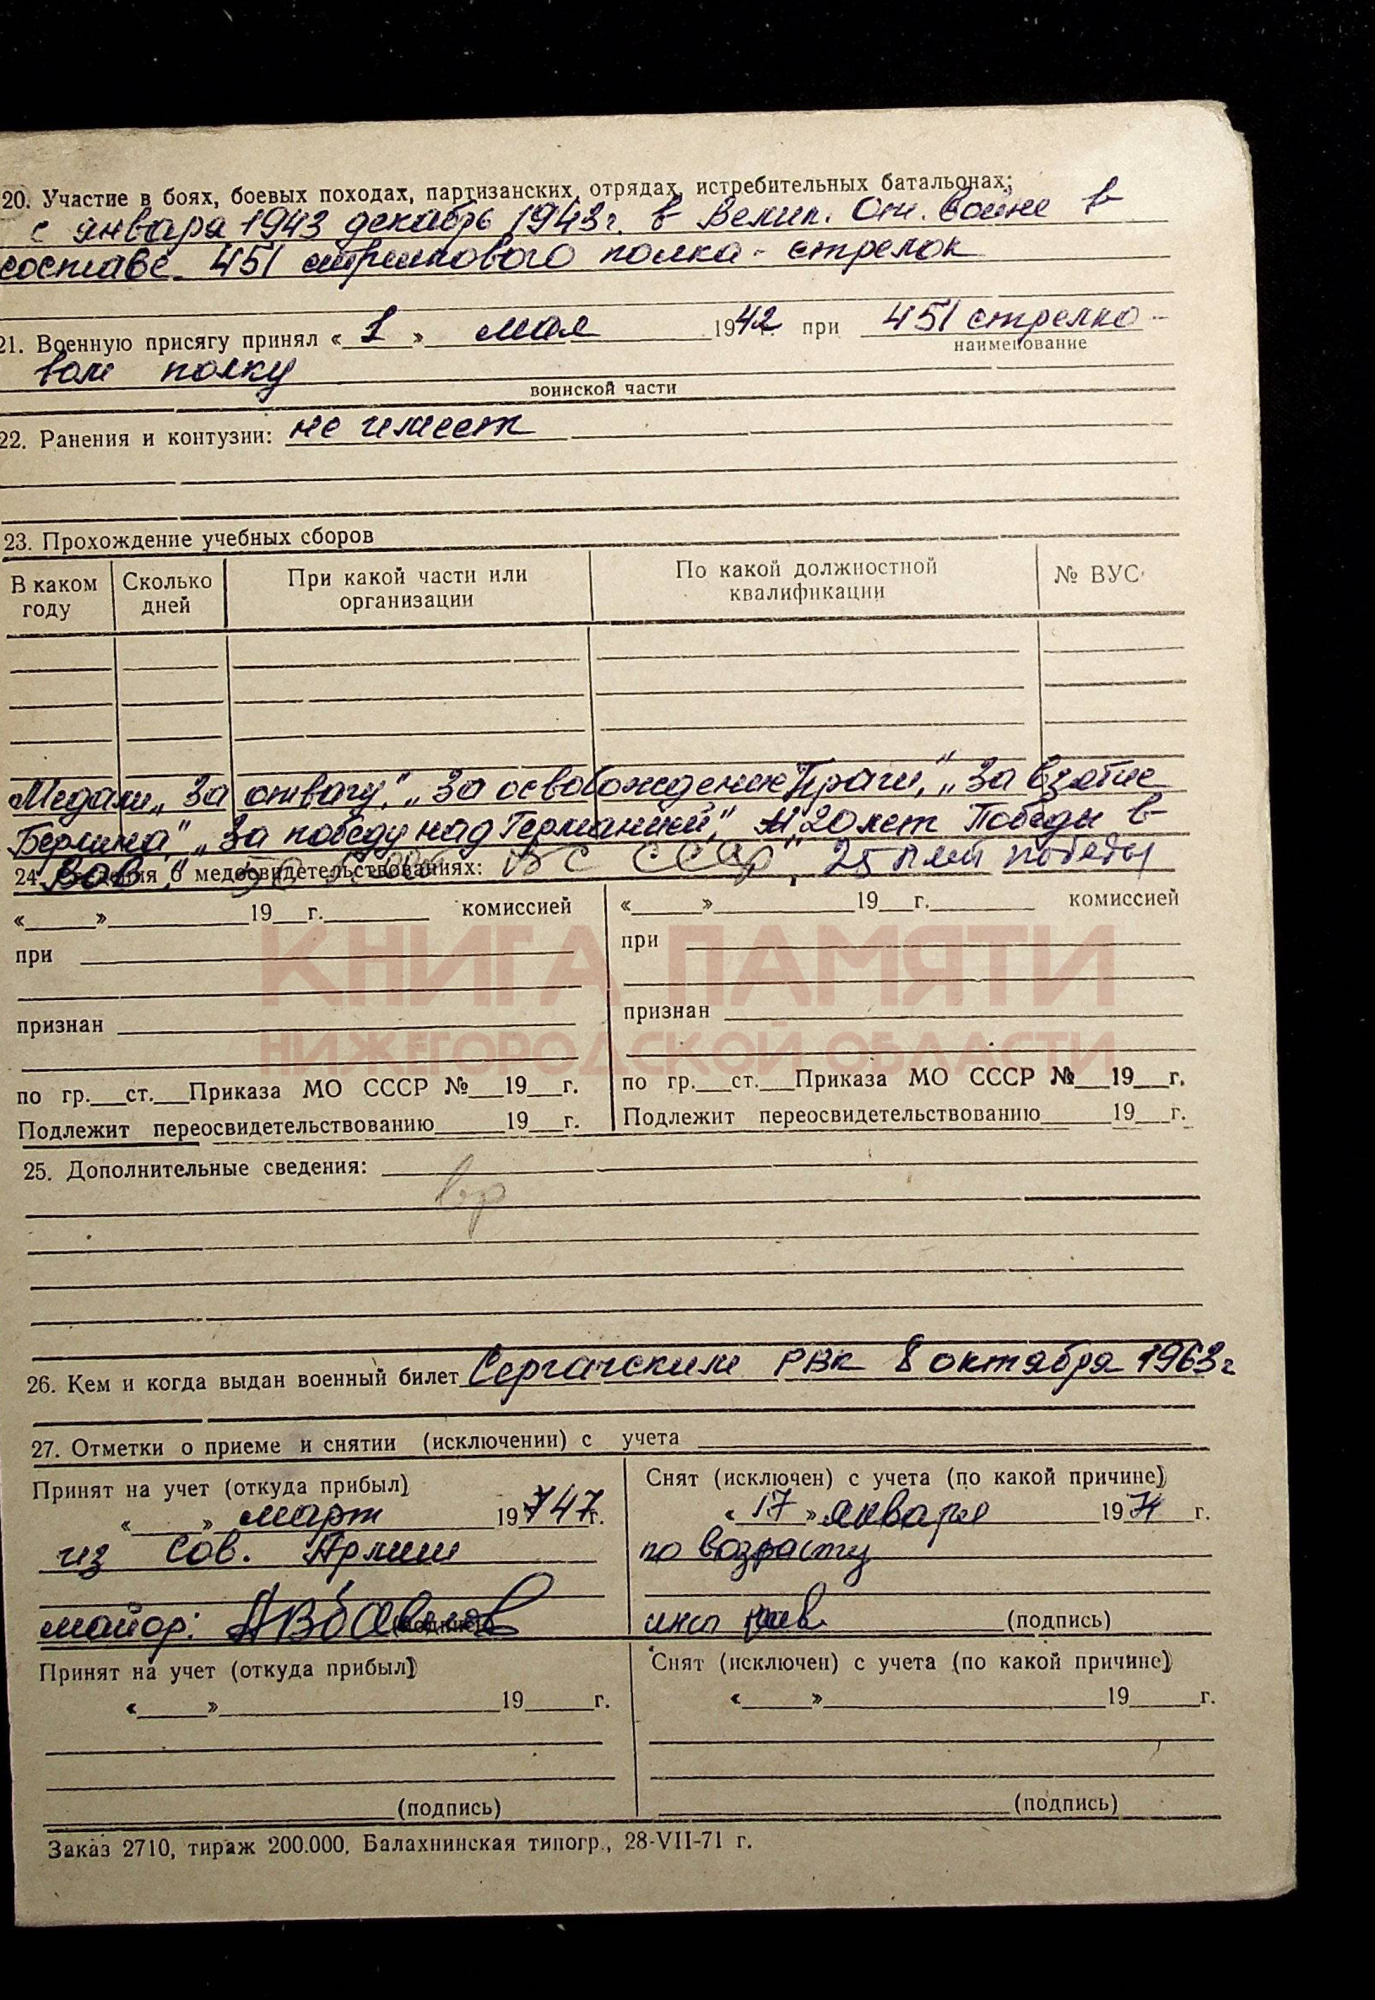 20. Участие в боях, боевых походах, партизанских отрядах, истребительных батальонах;
с января 1943 декабрь 1943г. в Велик. От. войне в
составе 451 стрелкового полка - стрелок
21. Военную присягу принял « 1 » мая 1942 г. при 451 стрелко-
наименование
вом полку
воинской части
22. Ранения и контузии: не имеет
23. Прохождение учебных сборов
В каком году Сколько дней При какой части или организации По какой должностной квалификации № ВУС
Медали „За отвагу", „За освобождение Праги", „За взятие
Берлина", „За победу над Германией", „20 лет Победы в
ВОВ", 50 лет ВС СССР, 25 лет победы
24. Сведения о медосвидетельствованиях:
«____»________19__г.______ комиссией «____»________19__г.______ комиссией
при при
КНИГА ПАМЯТИ
признан признан
НИЖЕГОРОДСКОЙ ОБЛАСТИ
по гр.__ст.__Приказа МО СССР №__19__г. по гр.__ст.__Приказа МО СССР №__19__г.
Подлежит переосвидетельствованию____19__г. Подлежит переосвидетельствованию____19__г.
25. Дополнительные сведения:
26. Кем и когда выдан военный билет Сергачским РВК 8 октября 1963г
27. Отметки о приеме и снятии (исключении) с учета
Принят на учет (откуда прибыл) Снят (исключен) с учета (по какой причине)
«____» март 1947г. « 17 » января 1974 г.
из Сов. Армии по возрасту
майор: (подпись) инсп (подпись)
Принят на учет (откуда прибыл) Снят (исключен) с учета (по какой причине)
«____»________19____г. «____»________19____г.
(подпись) (подпись)
Заказ 2710, тираж 200.000. Балахнинская типогр., 28-VII-71 г.